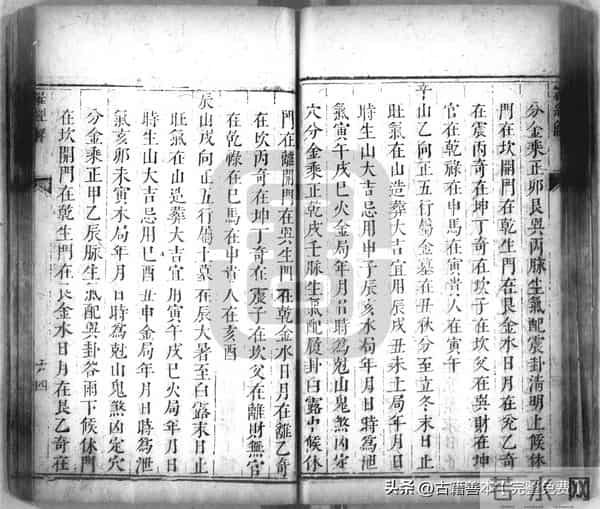 分金乘正卯艮巽丙脉生氣配震卦清明上候休
門在坎開門在乾生門在艮金水日月在兌乙奇
在震丙奇在坤丁奇在坎子在坎父在巽財在坤
官在乾祿在申馬在寅貴人在寅午
辛山乙向正五行屬金墓在丑秋分至立冬末日止
旺氣在山造葬大吉宜用辰戌丑未土局年月日
時生山大吉忌用申子辰亥水局年月日時為泄
氣寅午戌巳火金局年月日時為尅山鬼煞凶定
穴分金乘正乾戌壬脉生氣配卦白露中候休
門在離開門在巽生門在乾金水日月在離乙奇
在坎丙奇在坤丁奇在震子在坎父在離財無官
在乾祿在巳馬在申貴人在亥酉
辰山戌向正五行屬土墓在辰大暑至白露末日止
旺氣在山造葬大吉宜用寅午戌巳火局年月日
時生山大吉忌用巳酉丑申金局年月日時為泄
氣亥卯未寅木局年月日時為尅山鬼煞凶定穴
分金乘正甲乙辰脉生氣配巽卦谷雨下候休門
在坎開門在乾生門在艮金水日月在艮乙奇在
羅經解
头条 @古籍善本千完整免费